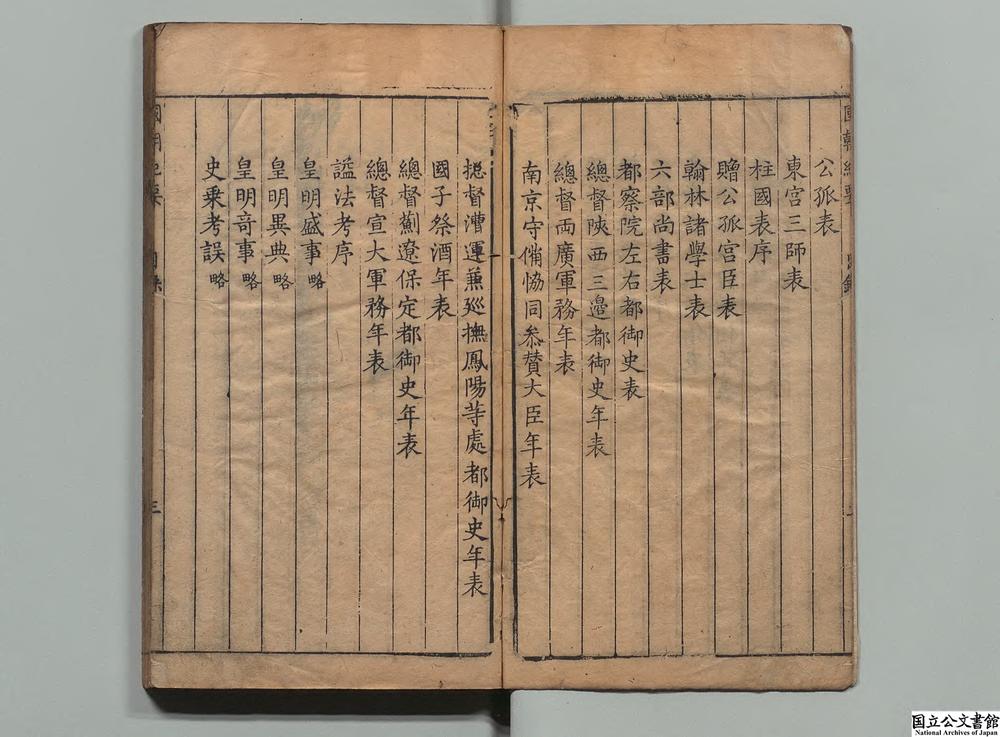 公孤表
東宮三師表
柱國表序
贈公孤宮臣表
翰林諸學士表
六部尚書表
都察院左右都御史表
總督陝西三邉都御史年表
總督両廣軍務年表
南京守俻協同叅賛大臣年表
捴督漕運蕪廵撫鳳陽等處都御史年表
國子祭酒年表
總督薊遼保定都御史年表
總督宣大軍務年表
謚法考序
皇明盛事略
皇明異典略
皇明竒事略
史乗考誤略
三
国立公文書館
National Archives of Japan